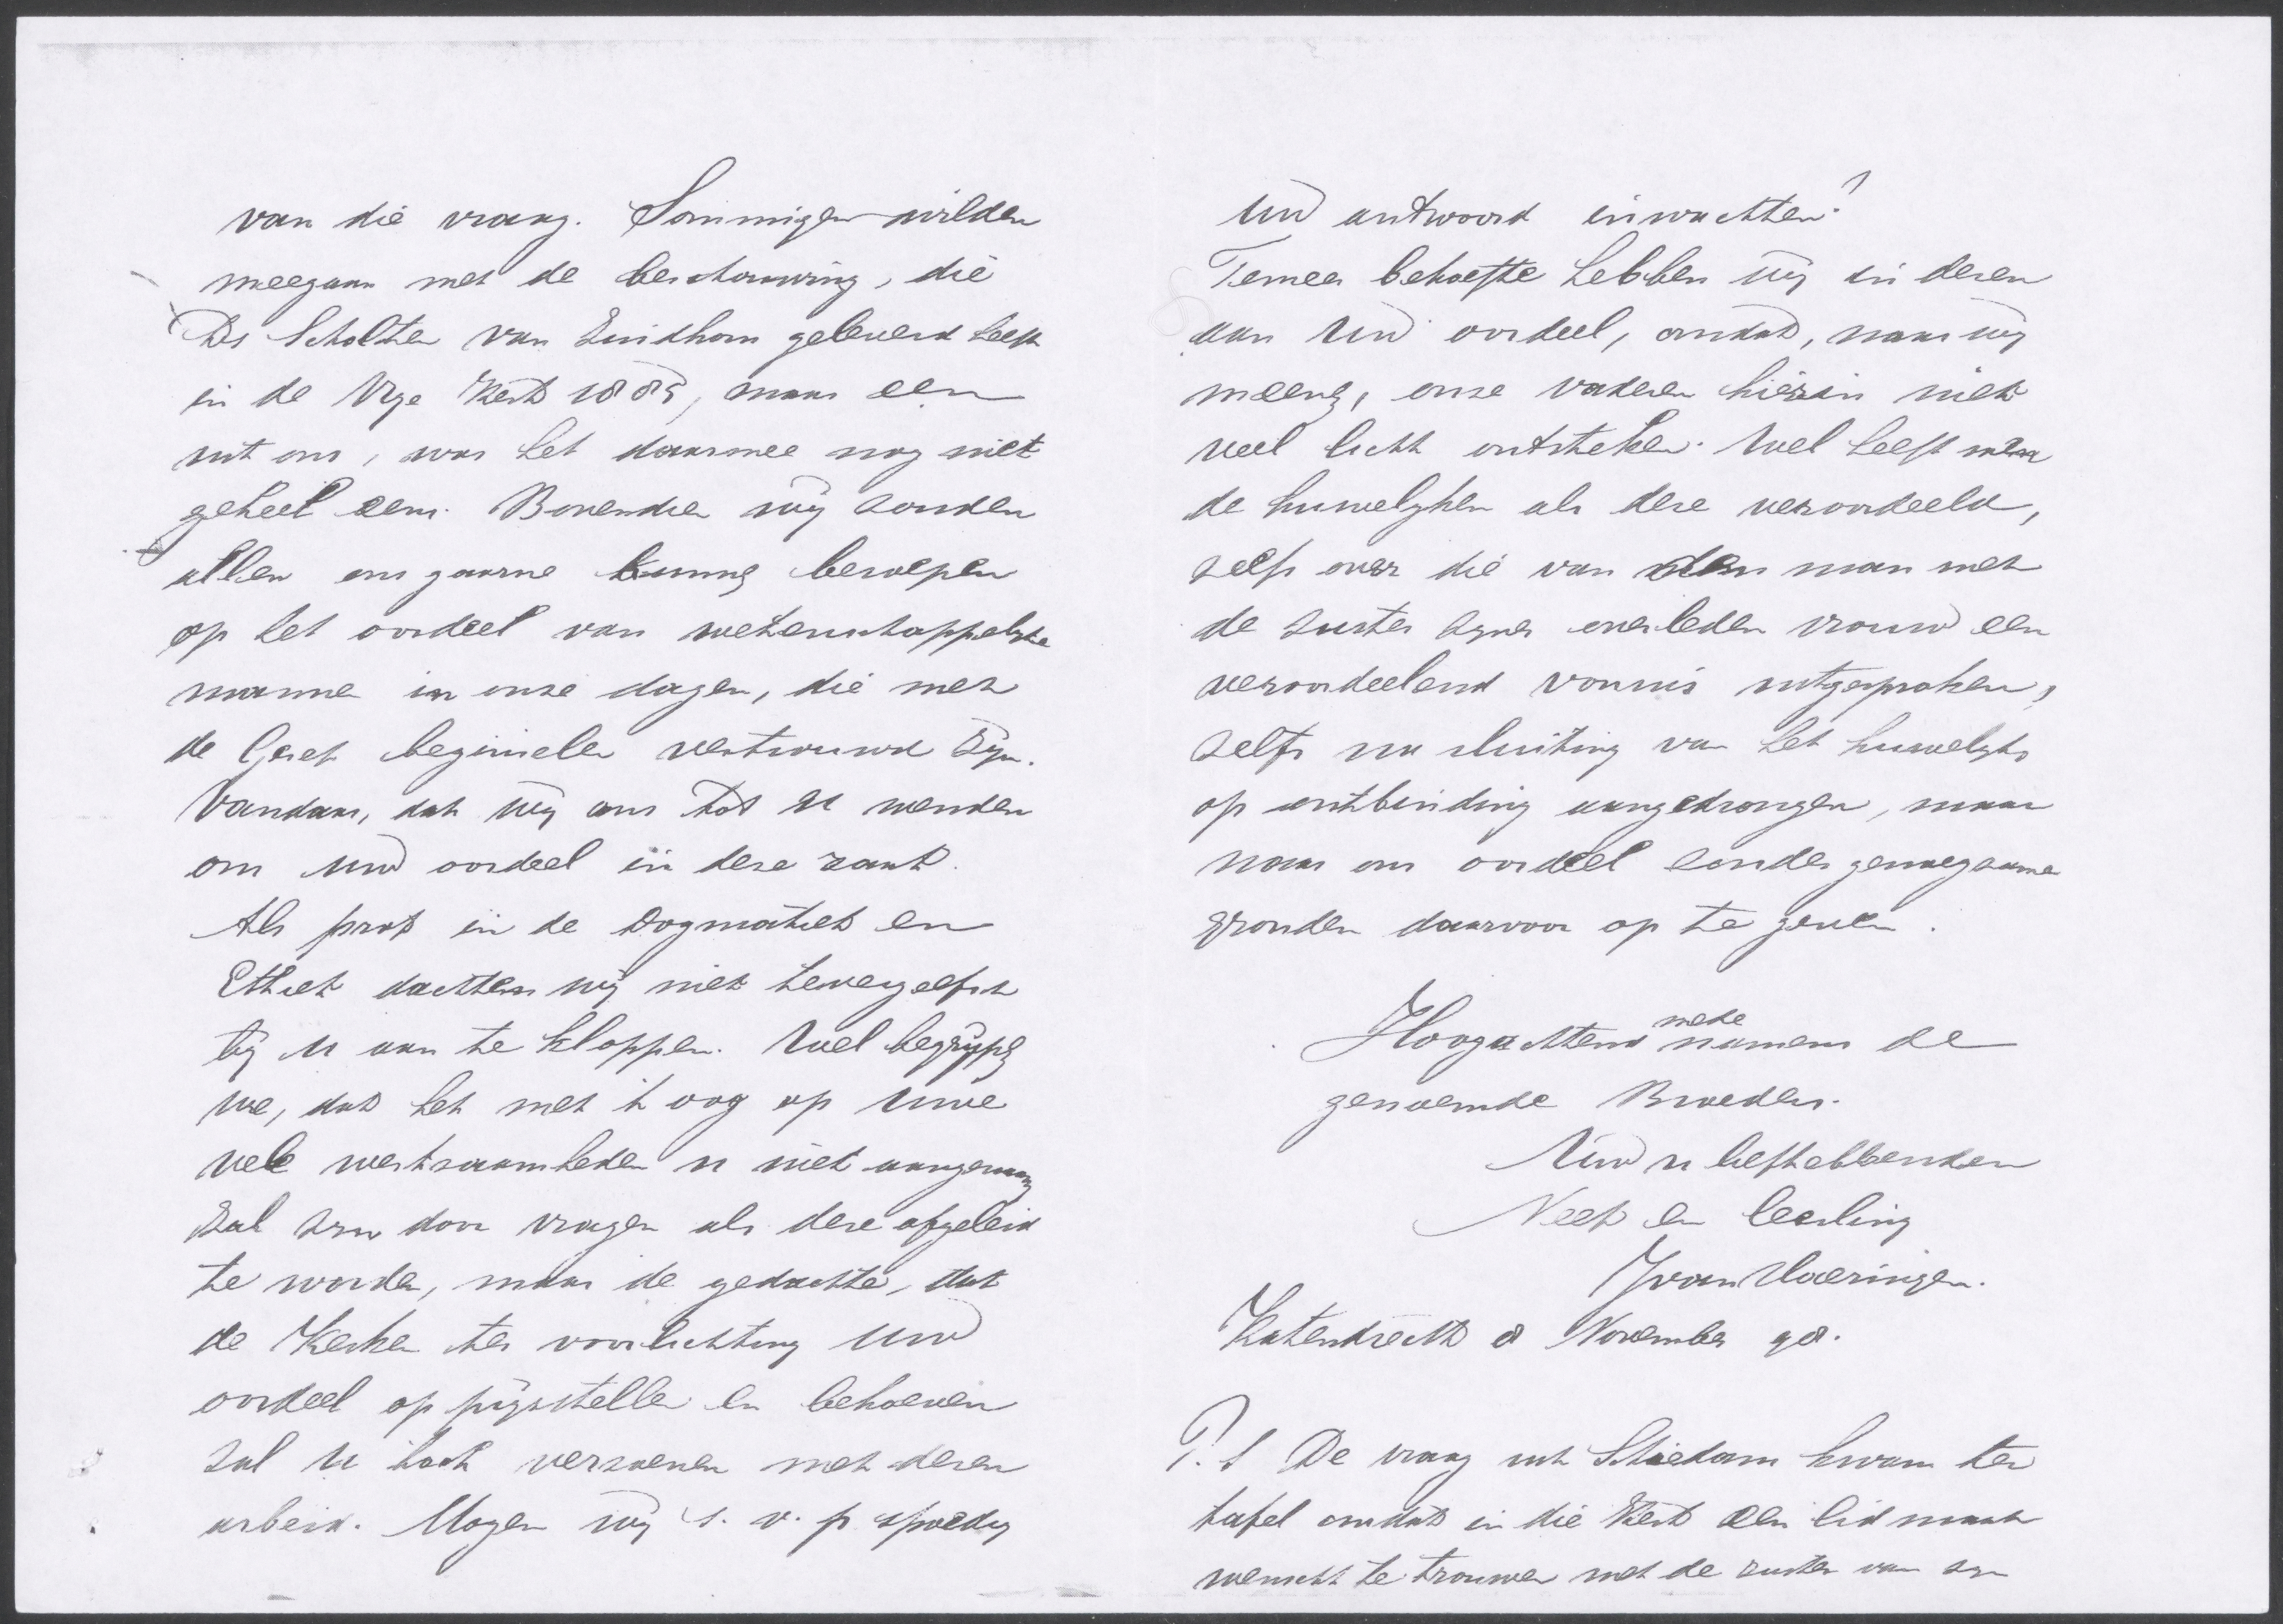 van die vraag. Sommigen wilden
meegaan met de beschouwing, die
Ds Scholten van Zuidhorn geleverd heeft
in de Vrije Kerk 1885, maar een
uit ons, was het daarmee nog niet
geheel eens. Bovendien wij zouden
allen ons gaarne kunnen beroepen
op het oordeel van wetenschappelijke
mannen in onze dagen, die met
de Geref. beginselen vertrouwd zijn.
Vandaar, dat wij ons tot U wenden
om Uw oordeel in deze zaak.
Als prof in de Dogmatiek en
Ethiek dachten wij niet tevergeefsch
bij U aan te kloppen. Wel begrijpen
we, dat het met 't oog op Uwe
vele werkzaamheden U niet aangenaam
zal zijn door vragen als deze afgeleid
te worden, maar de gedachte, dat
de Kerken ter voorlichting Uw
oordeel op prijsstellen en behoeven
zal U toch verzoenen met dezen
arbeid. Mogen wij s. v. p spoedig
Uw antwoord inwachten?
Temeer behoefte hebben wij in dezen
aan Uw oordeel, omdat, naar wij
meenen, onze vaderen hierin niet
veel licht ontsteken. Wel heeft men
de huwelijken als deze veroordeeld,
zelfs over die van den man met
de zuster zijner overleden vrouw een
veroordeelend vonnis uitgesproken,
zelfs na sluiting van het huwelijk
op ontbinding aangedrongen, maar
naar ons oordeel zonder genoegzame
gronden daarvoor op te geven.
Hoogachtend mede namens de
genoemde Broeders.
Uw U liefhebbenden
Neef en leerling
J van Haeringen.
Katendrecht 8 November 98.
P. S De vraag uit Schiedam kwam ter
tafel omdat in die Kerk een lidmaat
wenscht te trouwen met de zuster van zijn